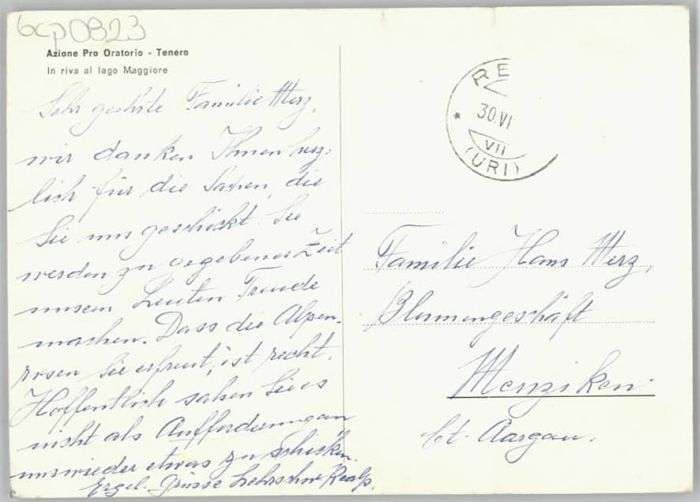 bcp0823
Azione Pro Oratorio - Tenero
In riva al lago Maggiore
Sehr geehrte Familie Merz,
wir danken Ihnen herz-
lich für die Sachen, die
Sie uns geschickt. Sie
werden zu gegebener Zeit
unsern Leuten Freude
machen. Dass die Alpen-
rosen Sie erfreut, ist recht.
Hoffentlich sahen Sie es
nicht als Aufforderung an
uns wieder etwas zu schicken.
Ergeb. Grüsse Realp.
RE
30.VI
VII
(URI)
Familie Hans Merz,
Blumengeschäft
Menziken
kt. Aargau.